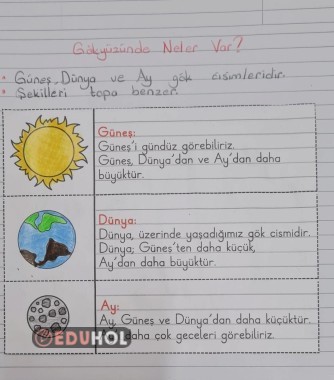 Gökyüzünde Neler Var?
• Güneş, Dünya ve Ay gök cisimleridir.
• Şekilleri topa benzer.
Güneş:
Güneş'i gündüz görebiliriz.
Güneş, Dünya'dan ve Ay'dan daha
büyüktür.
Dünya:
Dünya, üzerinde yaşadığımız gök cismidir.
Dünya; Güneş'ten daha küçük,
Ay'dan daha büyüktür.
Ay:
Ay, Güneş ve Dünya'dan daha küçüktür.
daha çok geceleri görebiliriz.
EDUHOL